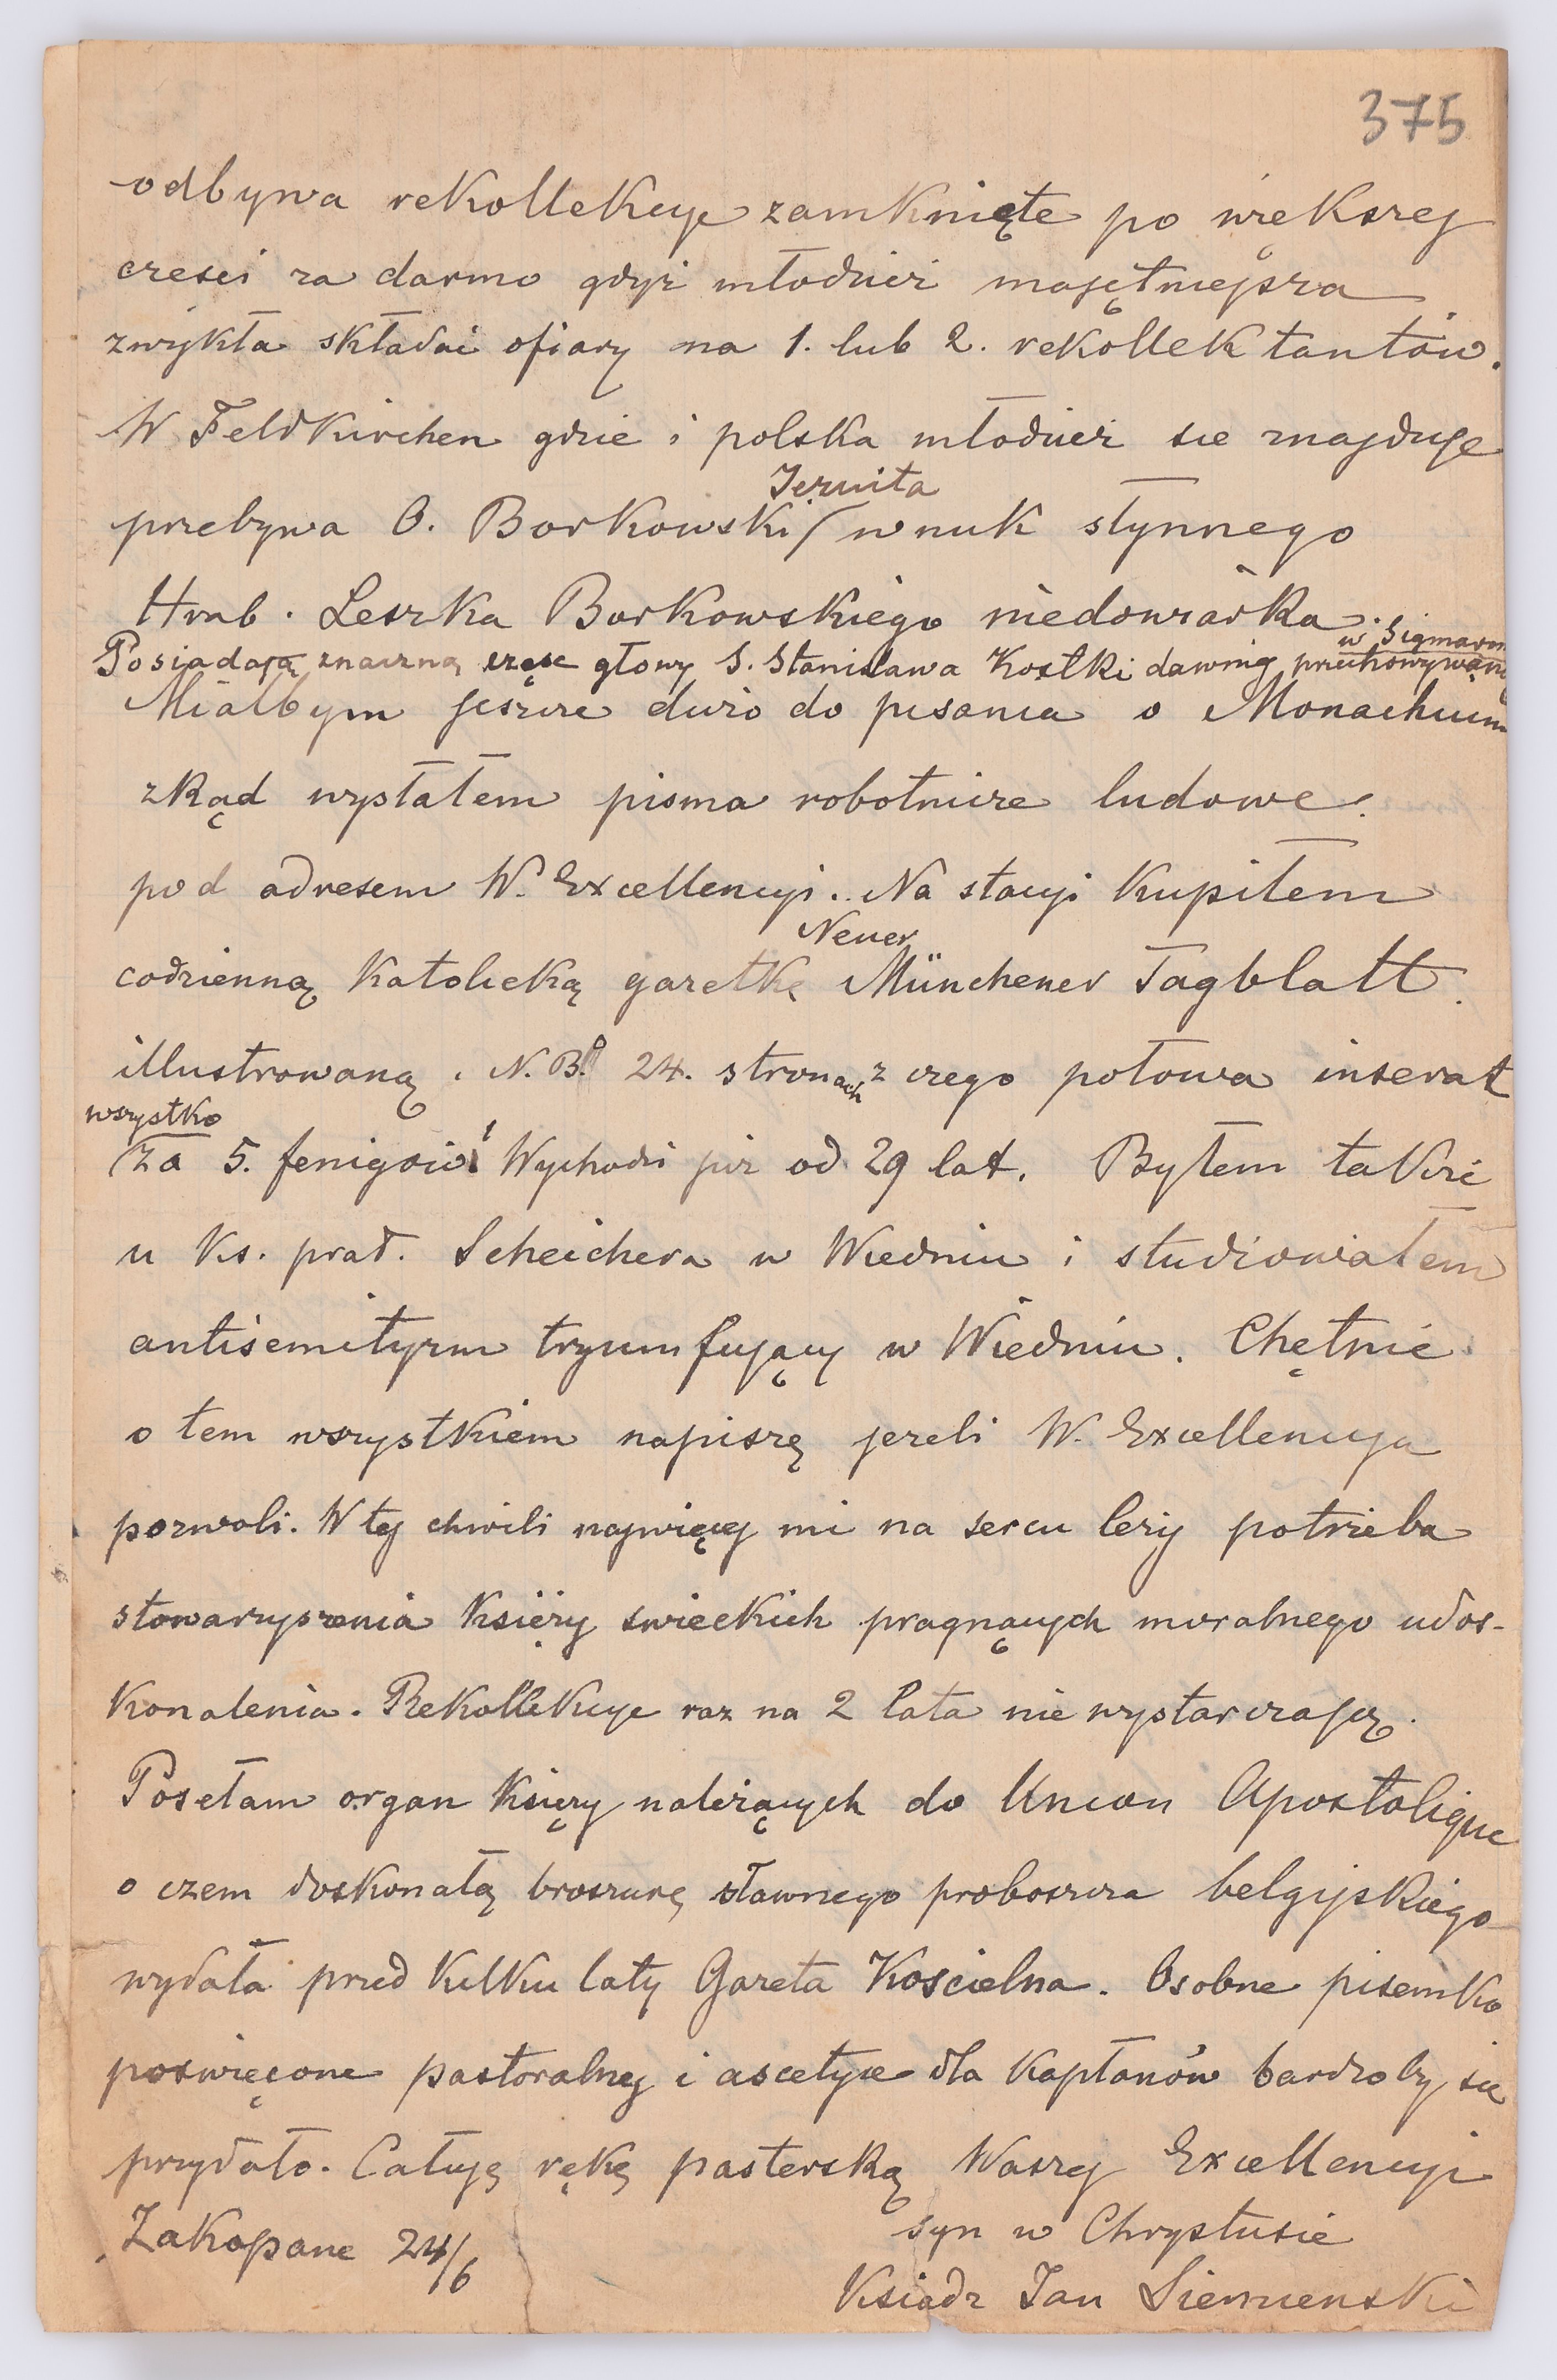 375
odbywa rekollekcye zamknięte po większej
cześci za darmo gdyż młodzież majętniejsza
zwykła składać ofiary na 1. lub 2. rekollektantów.
W Feldkirchen gdzie i polska młodzież sie znajduje
Jezuita
przebywa O. Borkowski / wnuk słynnego
Hrab. Leszka Borkowskiego niedowiarka.
w. Sigmarin
Posiadają znaczną częsc głowy S. Stanisława Kostki dawniej przechowywaną
Miałbym jeszcze dużo do pisania o Monachium
zkąd wysłałem pisma robotnicze ludowe.
pod adresem W. Excellencyi. Na stacyi kupiłem
Neuer
codzienną katolicką gazetkę Münchener Tagblatt.
illustrowaną. N.B. 24. stronach z czego połowa inserat
wszystko
za 5. fenigów! Wychodzi już od 29 lat. Byłem także
u ks. prał. Scheichera w Wiedniu i studiowałem
antisemityzm tryumfujący w Wiedniu. Chętnie
o tem wszystkiem napiszę jeżeli W. Excellencya
pozwoli. W tej chwili najwięcej mi na sercu leży potrzeba
stowarzyszenia księży swieckich pragnących moralnego udos-
konalenia. Rekollekcye raz na 2 lata nie wystarczają.
Posełam organ księży należących do Union Apostolique
o czem doskonałą broszurę sławnego proboszcza belgijskiego
wydała przed kilku laty Gazeta Koscielna. Osobne pisemko
poswięcone pastoralnej i ascetyce dla kapłanów bardzoby się
przydało. Całuję rękę pasterską Waszej Excellencyi
syn w Chrystusie
Zakopane 24/6
Ksiądz Jan Siemienski